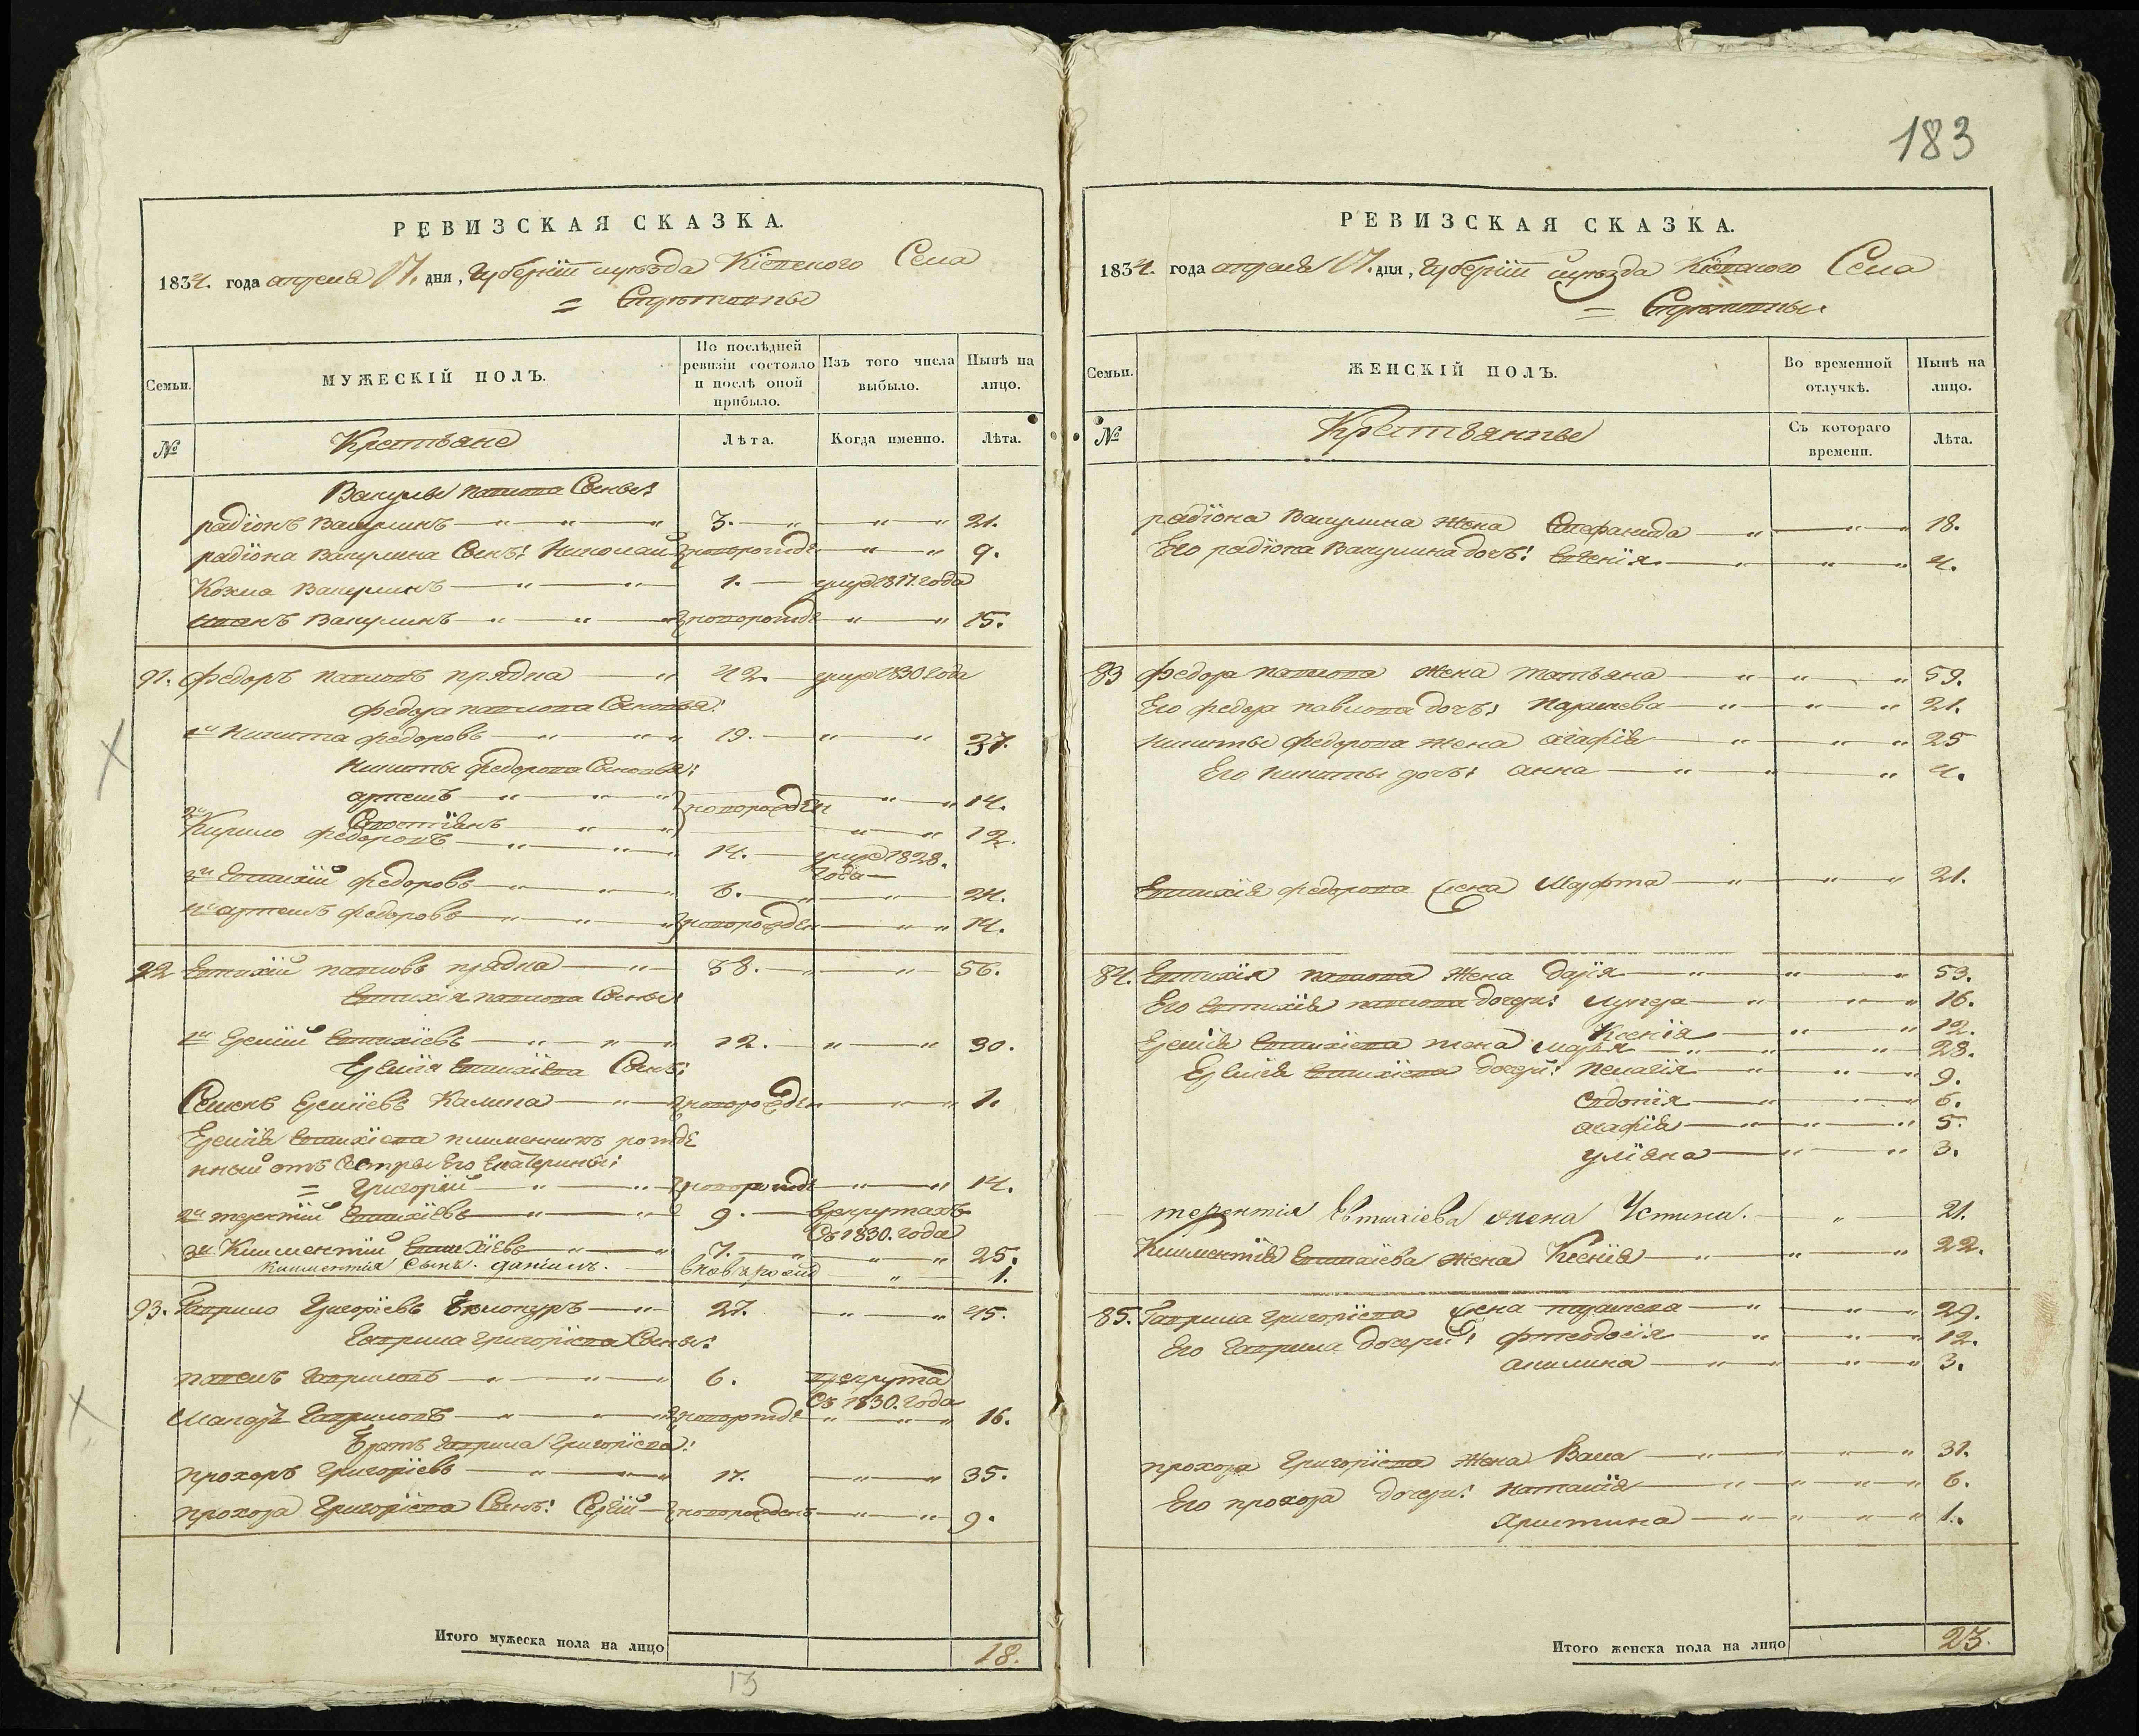 РЕВИЗСКАЯ СКАЗКА.
1834. года апреля 17. дня, Губернiи иуезда Кiевского Села
= Спретовпы
Семьи.
МУЖЕСКIЙ ПОЛЪ.
По послѣдней ревизiи состояло и послѣ оной прибыло.
Изъ того числа выбыло.
Нынѣ на лицо.
№
Крестьяне
Лѣта.
Когда именно.
Лѣта.
Вакулы павлова Сыны:
радiонъ вакулинъ — 3. — 21.
радiона вакулина Сынъ: Николай новорожде — 9.
Козма вакулинъ — 1. — умре 1817. года
иванъ вакулинъ — новорожде — 15.
91. федоръ павловъ прядка — 42. — умре 1830 года
федора павлова Сыновья:
1й Никита федоровъ — 19. — 37.
никиты федорова Сыновья:
артемъ — новорожден — 14.
Савостiянъ — 12.
2й Кирило федоровъ — 14. — умре 1828. года
3й Евтихiй федоровъ — 6. — 24.
4й артемъ федоровъ — новорожден — 14.
92 Евтихiй павловъ прядка — 38. — 56.
Евтихiя павлова Сыны:
1й Еремiй Евтихiевъ — 12. — 30.
Еремiя Евтихiева Сынъ:
Семенъ Еремiевъ Калина — новорожден — 1.
Еремiя Евтихiева племенникъ рожде
нный отъ Сестры Его Екатерины:
= Григорiй — новорожде — 14.
2й терентiй Евтихiевъ — 9. — врекрутахъ
Съ 1830. года
3й Климентiй Евтихiевъ — 7. — 25.
Климентiя Сынъ. данiилъ. — вновь рожд — 1.
93. Гаврило Григорiевъ Белокуръ — 27. — 45.
Гаврила григорiева Сыны:
павелъ Гавриловъ — 6. врекрута
Съ 1830. года
Макаръ Гавриловъ — новорожде — 16.
Братъ Гаврила Григорiева:
прохоръ Григорiевъ — 17. — 35.
прохора Григорiева Сынъ: Сергiй — новорожденъ — 9.
Итого мужеска пола на лицо 18.
13
183
РЕВИЗСКАЯ СКАЗКА.
1834. года апреля 17. дня, Губернiи иуезда Кiевского Села
= Спретовпы.
Семьи.
ЖЕНСКIЙ ПОЛЪ.
Во временной отлучкѣ.
Нынѣ на лицо.
№
Крестьянпы
Съ котораго времени.
Лѣта.
радiона вакулина жена Стефанида — 18.
Его радiона вакулина дочъ: Евгенiя — 4.
83 федора павлова жена татьяна — 59.
Его федора павлова дочъ: параскева — 21.
никиты федорова жена агафiя — 25
Его никиты дочъ: анна — 4.
Евтихiя федорова жена Марфта — 21.
84. Евтихiя павлова жена дарiя — 53.
Его Евтихiя павлова дочери: лукера — 16.
Ксенiя — 12.
Еремiя Евтихiева жена марья — 28.
Еремiя Евтихiева дочери: пелагiя — 9.
Овдотiя — 6.
агафiя — 5.
улiяна — 3.
терентiя Евтихiева жена Устина. — 21.
Климентiя Евтихiева жена Ксенiя — 22.
85. Гаврила григорiева жена параскева — 29.
Его Гаврила дочери: фтеодосiя — 12.
акилина — 3.
прохора Григорiева жена Васа — 31.
Его прохора дочери: наталiя — 6.
христина — 1.
Итого женска пола на лицо 23.